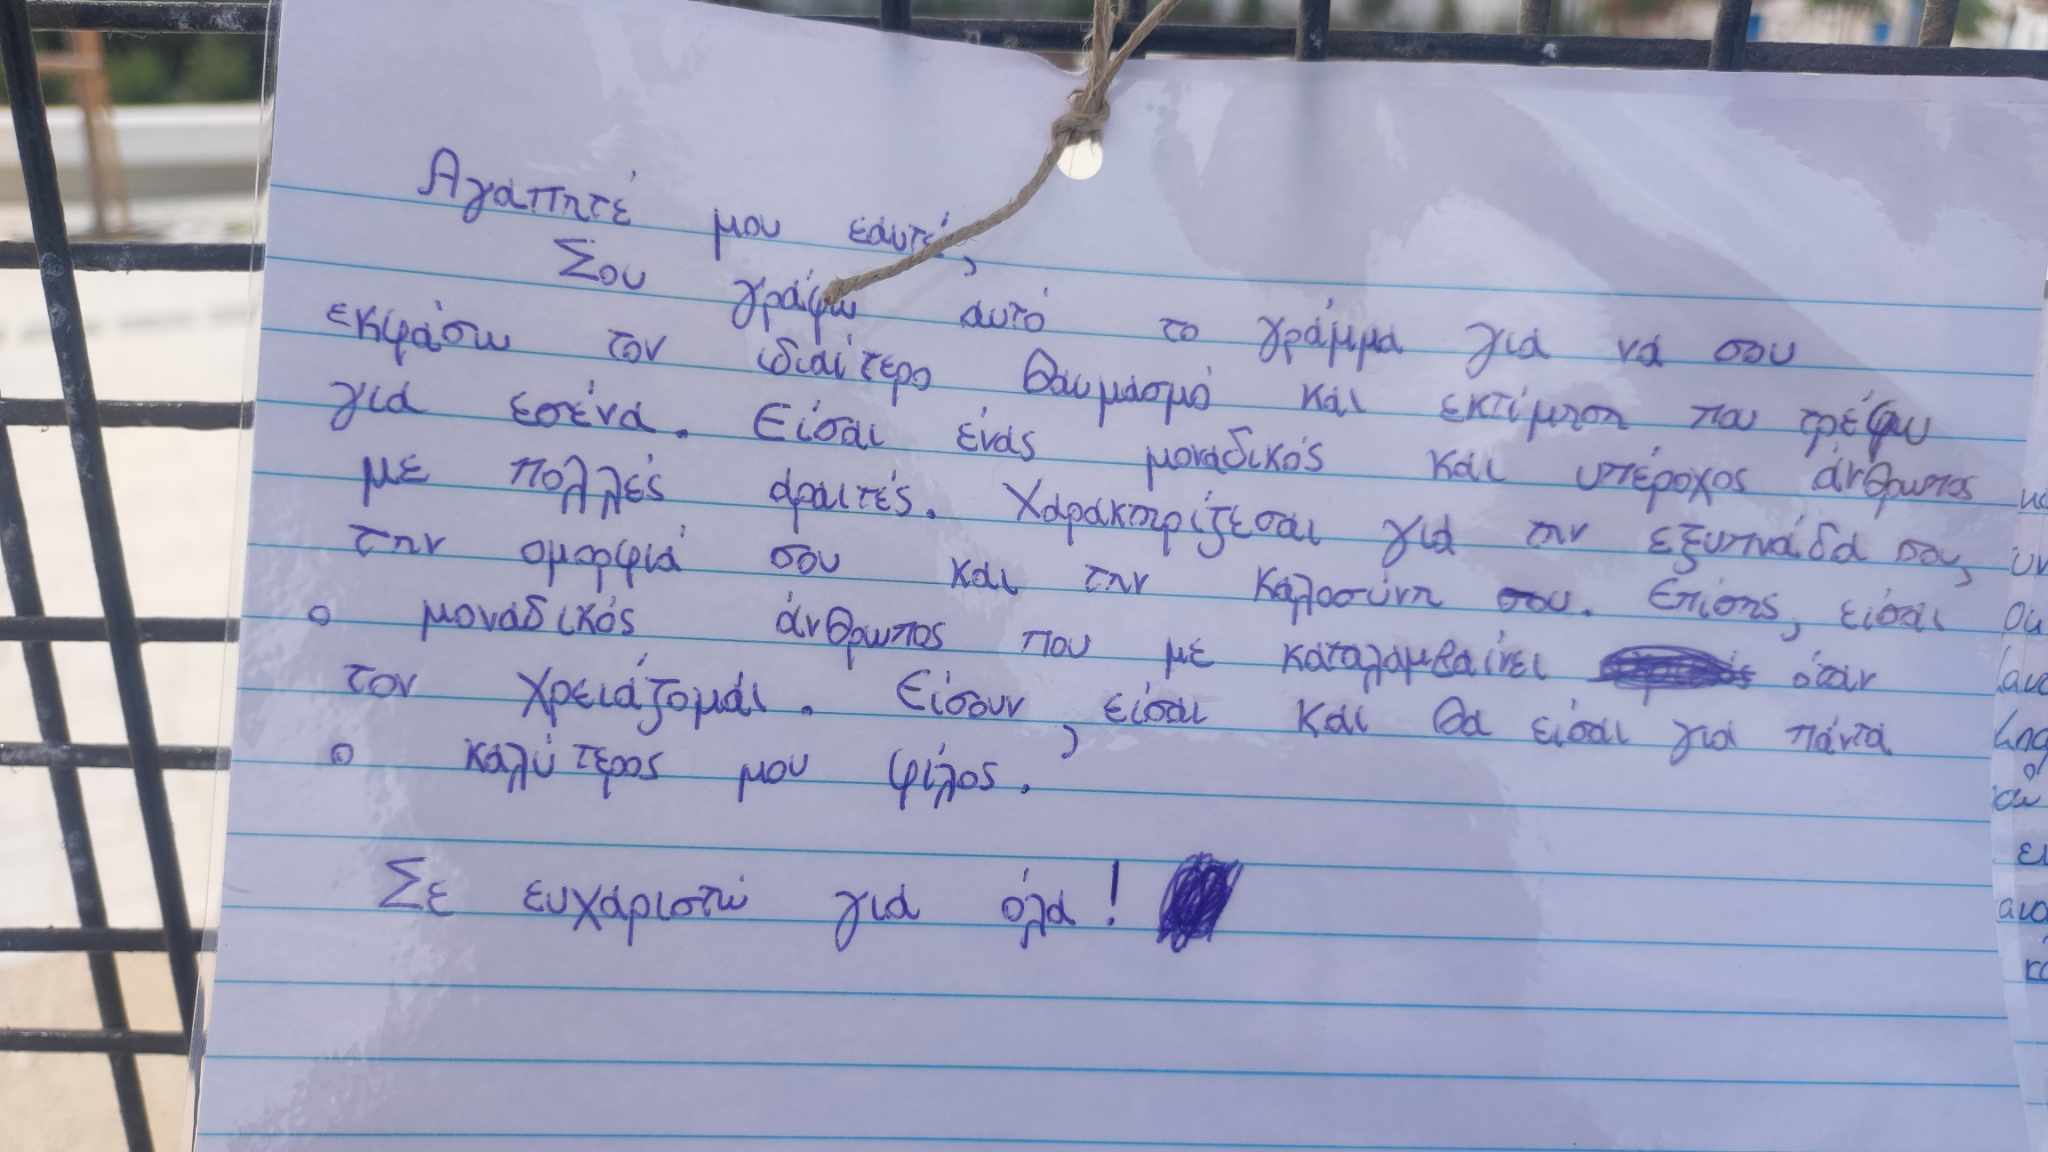 Αγαπητέ μου εαυτέ,
Σου γράφω αυτό το γράμμα για να σου
εκφράσω τον ιδιαίτερο θαυμασμό και εκτίμηση που τρέφω
για εσένα. Είσαι ένας μοναδικός και υπέροχος άνθρωπος
με πολλές αραιτές. Χαρακτηρίζεσαι για την εξυπνάδα σου,
την ομορφιά σου και την καλοσύνη σου. Επίσης, είσαι
ο μοναδικός άνθρωπος που με καταλαμβαίνει όταν
τον χρειάζομαι. Είσουν, είσαι και θα είσαι για πάντα
ο καλύτερος μου φίλος.
Σε ευχαριστώ για όλα!